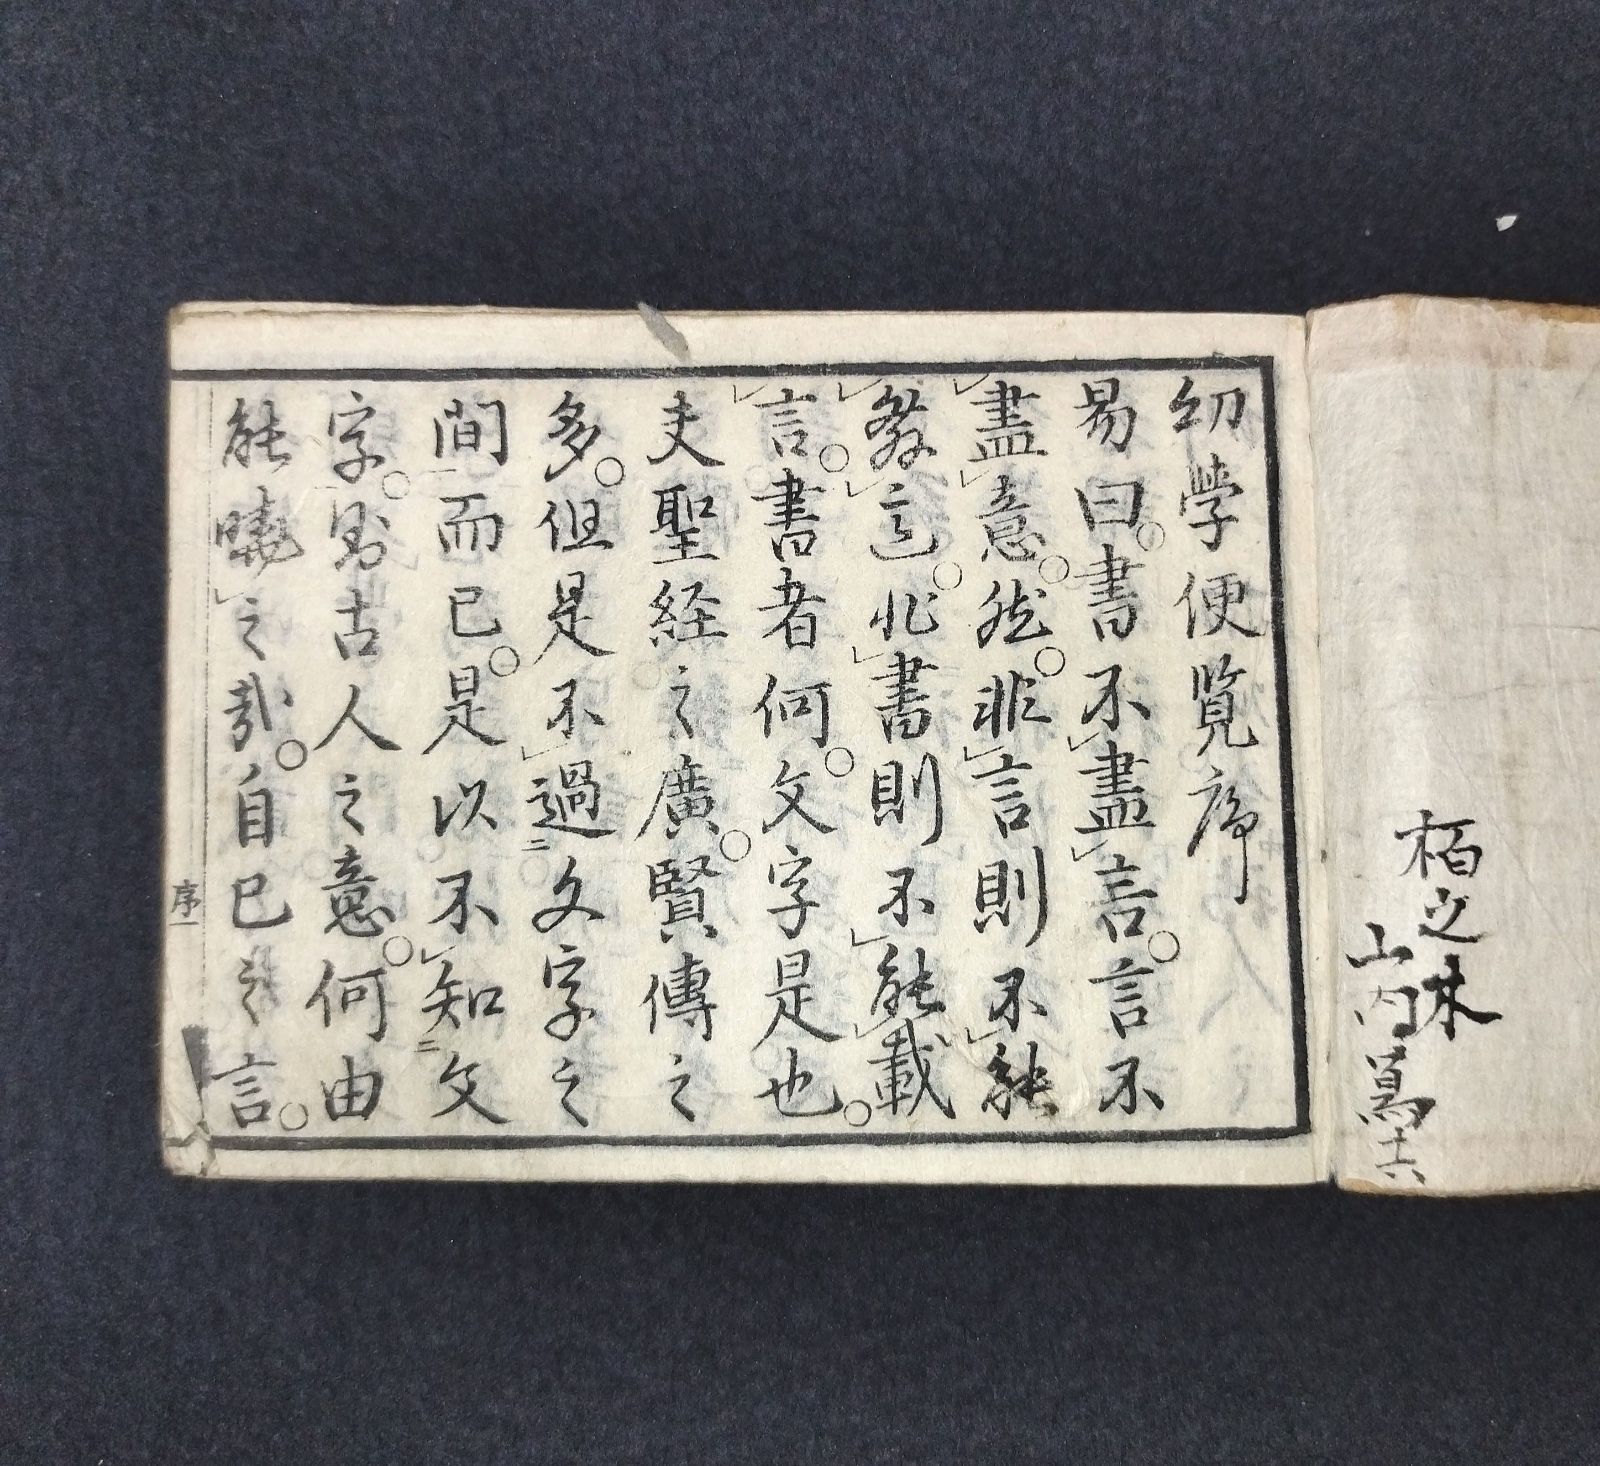 柏之林
山内萬六
幼學便覧序
易曰。書不盡言。言不
盡意。然。非言則不能
發意。非書則不能載
言。書者何。文字是也。
夫聖経之廣。賢傳之
多。但是不過二文字之
間一而已。是以不知二文
字。則古人之意。何由
能曉之哉。自己之言。
序一